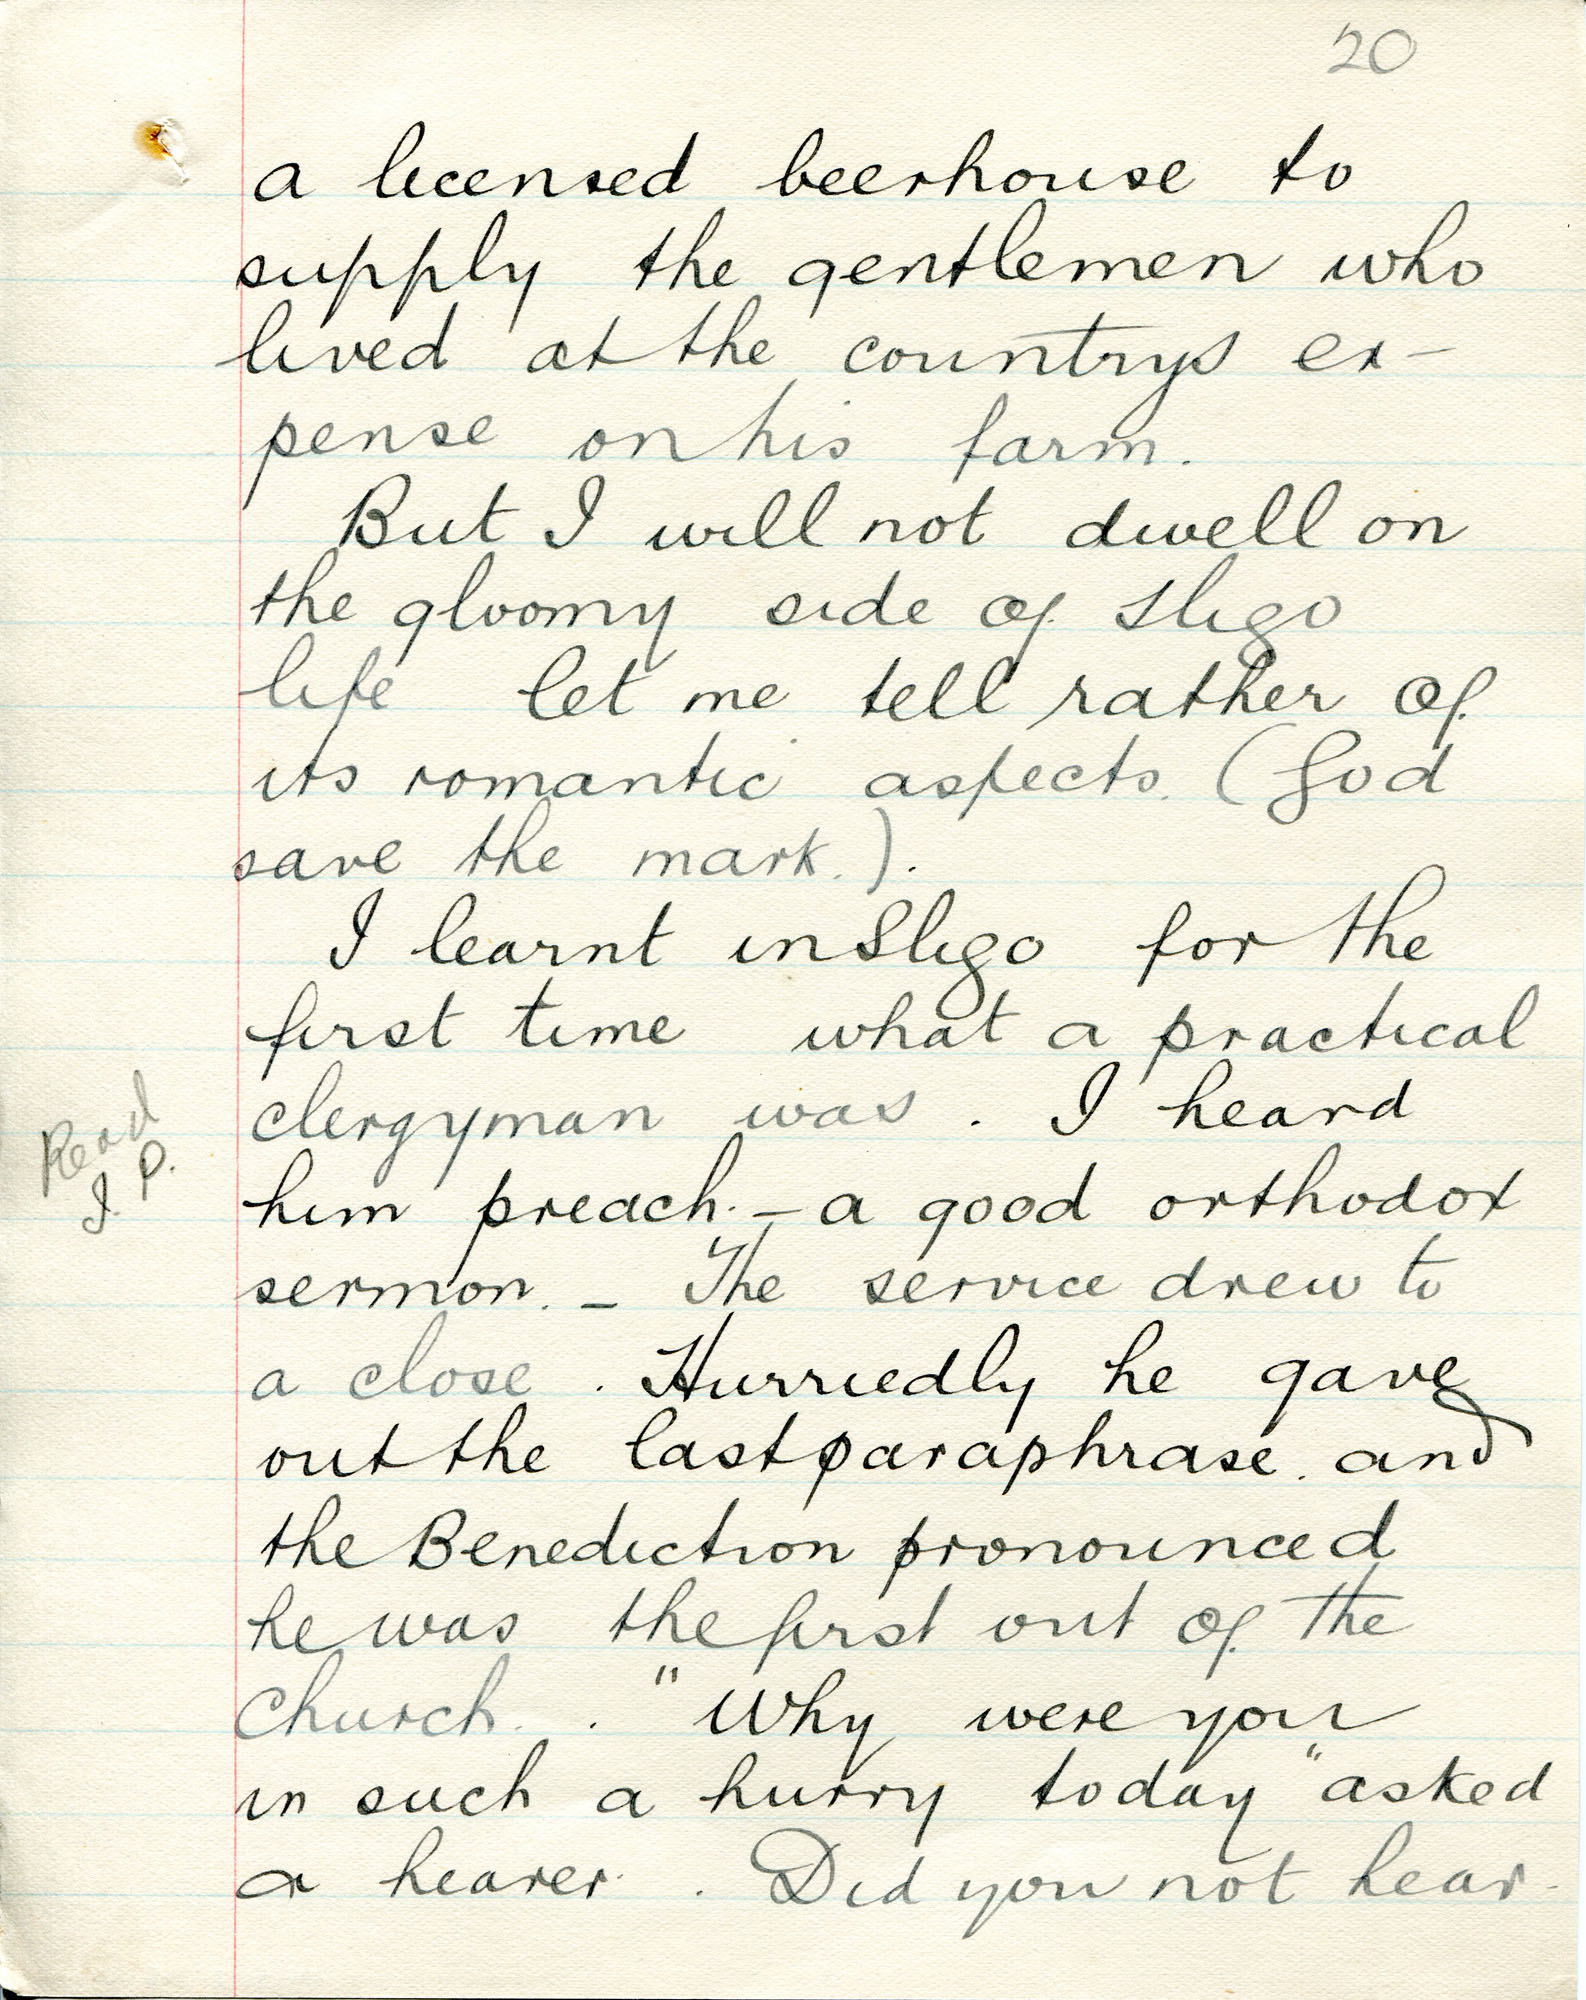 20
a licensed beerhouse to
supply the gentlemen who
lived at the countrys ex-
pense on his farm.
But I will not dwell on
the gloomy side of Sligo
life let me tell rather of
its romantic aspects. (God
save the mark.).
I learnt in Sligo for the
first time what a practical
clergyman was. I heard
Read
J. P.
him preach. – a good orthodox
sermon. – The service drew to
a close. Hurriedly he gave
out the last paraphrase. and
the Benediction pronounced
he was the first out of the
Church. . "Why were you
in such a hurry today" asked
a hearer. . Did you not hear.